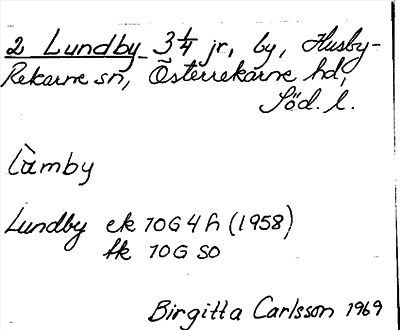 2 Lundby 3 1/4 jr, by, Husby-
Rekarne sn, Österrekarne hd,
Söd. l.
Làmby
Lundby ek 10G 4h (1958)
tk 10G SO
Birgitta Carlsson 1969